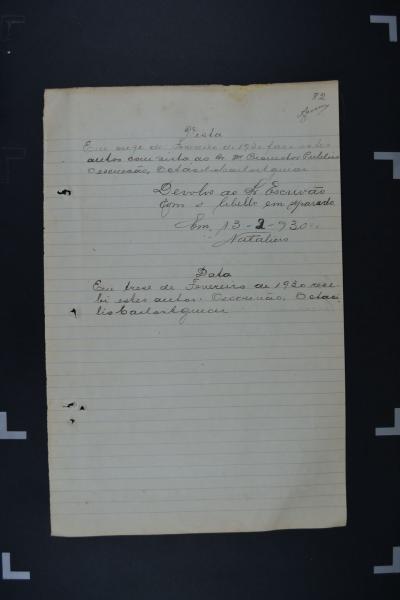 82
Vista
Em onze de Fevereiro de 1930 faço estes
autos com vista ao Sr. Dr. Promotor Publico
O escrivão, Octacilio Carlos
Devolvo ao Sr Escrivão
com o libello em separado.
Em, 13-2-930
Natalicio
Data
Em treze de Fevereiro de 1930 rece-
bi estes autos. O escrivão, Octaci-
lio Carlos